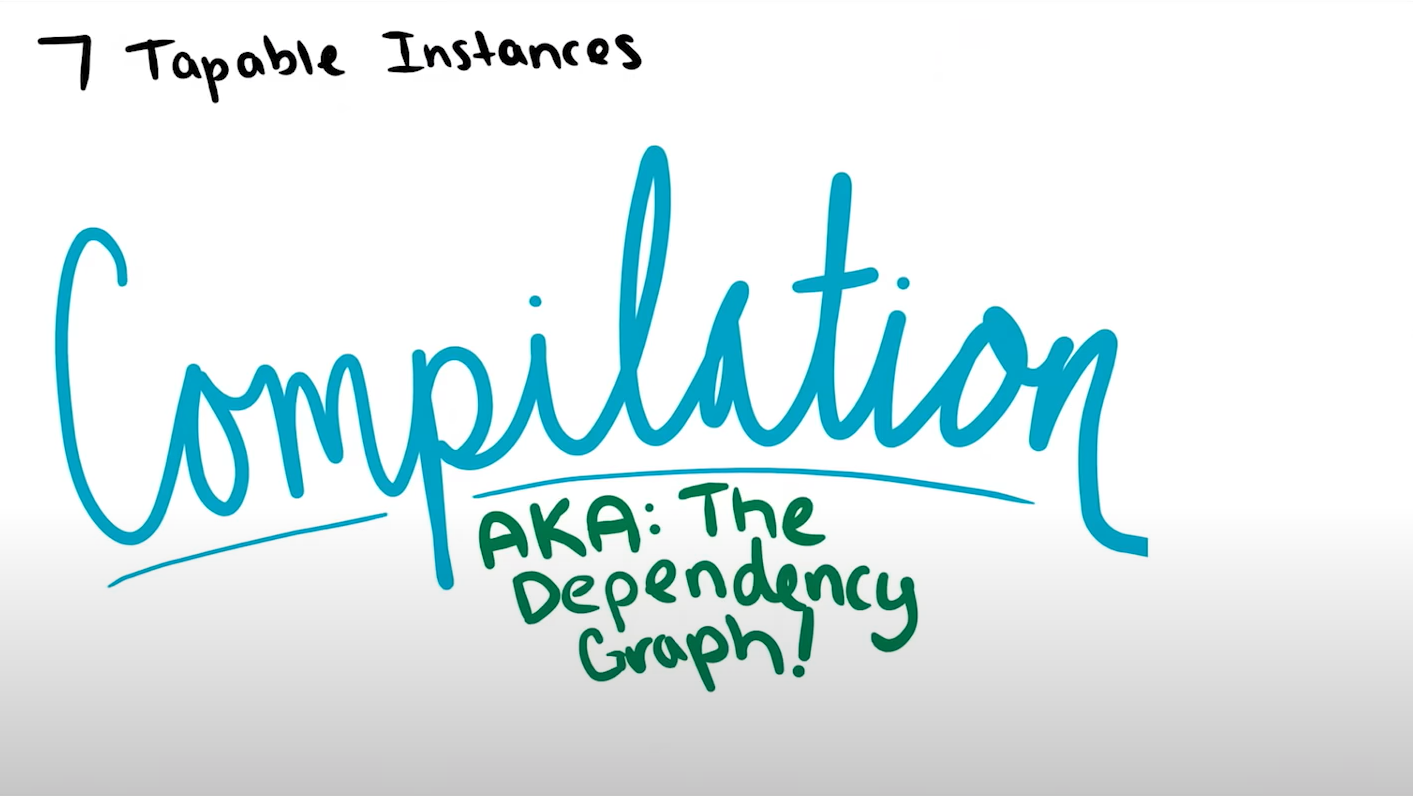 7 Tapable Instances
Compilation
AKA: The
Dependency
Graph!